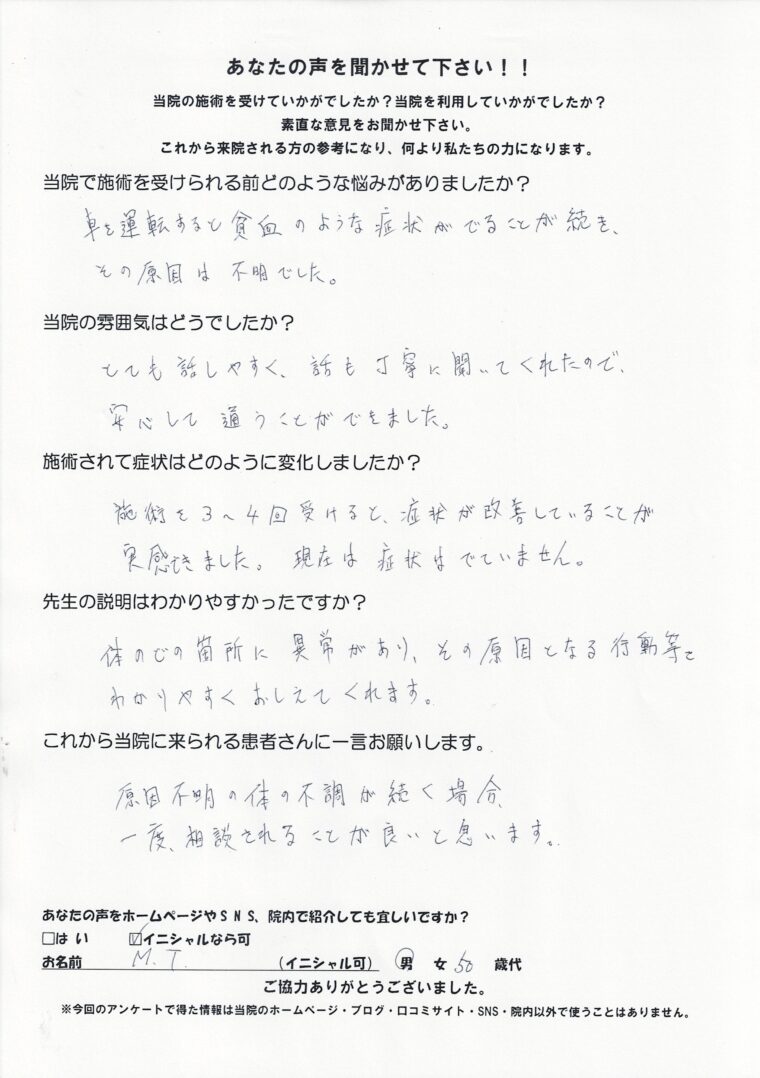 あなたの声を聞かせて下さい！！
当院の施術を受けていかがでしたか？当院を利用していかがでしたか？
素直な意見をお聞かせ下さい。
これから来院される方の参考になり、何より私たちの力になります。
当院で施術を受けられる前どのような悩みがありましたか？
車を運転すると貧血のような症状がでることが続き、
その原因は不明でした。
当院の雰囲気はどうでしたか？
とても話しやすく、話も丁寧に聞いてくれたので、
安心して通うことができました。
施術されて症状はどのように変化しましたか？
施術を3〜4回受けると、症状が改善していることが
実感できました。現在は症状はでていません。
先生の説明はわかりやすかったですか？
体のどの箇所に異常があり、その原因となる行動等を
わかりやすくおしえてくれます。
これから当院に来られる患者さんに一言お願いします。
原因不明の体の不調が続く場合、
一度、相談されることが良いと思います。
あなたの声をホームページやSNS、院内で紹介しても宜しいですか？
□はい ☑イニシャルなら可
お名前 M.T. （イニシャル可） 男 女 50 歳代
ご協力ありがとうございました。
※今回のアンケートで得た情報は当院のホームページ・ブログ・口コミサイト・SNS・院内以外で使うことはありません。